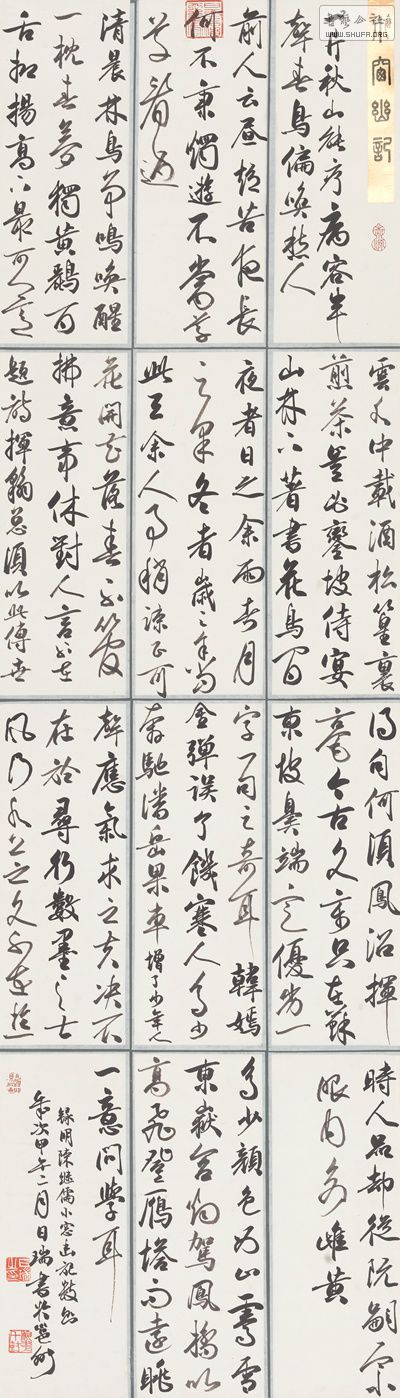 小窗幽記
一片秋山能疗病容半
聲春鳥偏喚愁人
前人云晝短苦夜長
何不秉燭遊不當草
草看過
清晨林鳥爭鳴喚醒
一枕春夢獨黄鸝百
舌抑揚高下最可人意
雲水中載酒松篁裏
煎茶豈必鑾坡侍宴
山林下著書花鳥間
夜者日之余雨者月
之余冬者歲之余當
此三余人事稍疎正可
花開花落春不管
拂意事休對人言
題詩揮翰總須以此傳世
得句何須鳳沼揮
毫今古文章只在蘇
東坡鼻端定優劣一
字一句之奇耳 韓嫣
金彈誤了饑寒人多少
奔馳潘岳果車增了少年人
聲應氣求之夫決不
在於尋行數墨之士
風行水上之文不在於一
時人品却從阮嗣宗
眼内别雌黄
多少顔色 西山霽雪
東嶽含煙駕鳳橋以
高飛登雁塔而遠眺
一意問學耳
録明陳繼儒小窗幽記數則
年次甲午二月日瑞書於邕州
WWW.SHUFA.ORG